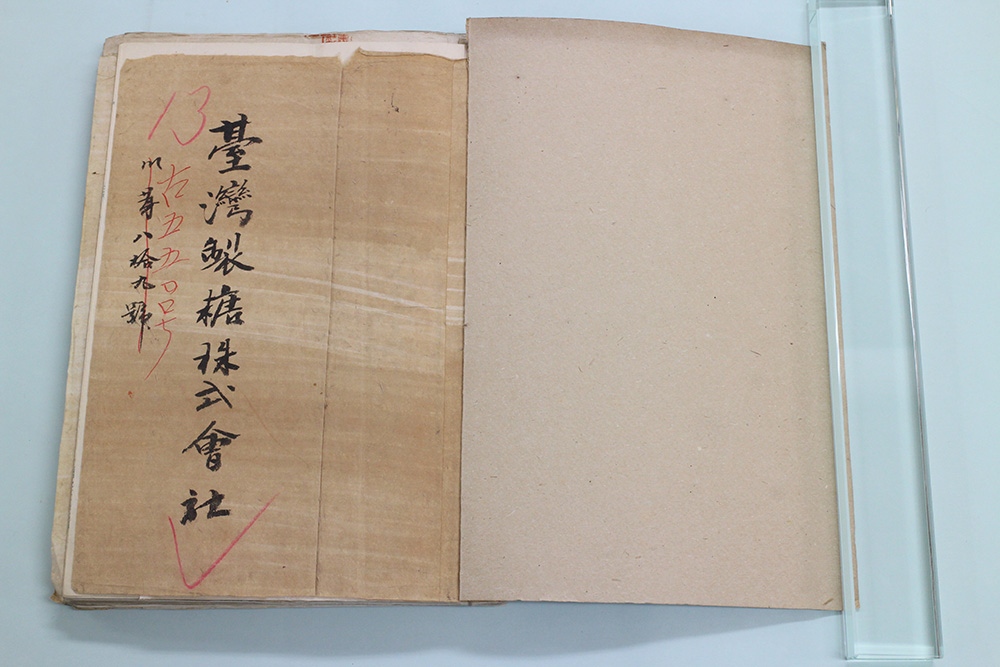 13
臺灣製糖株式會社
五五〇〇号
第八拾九號